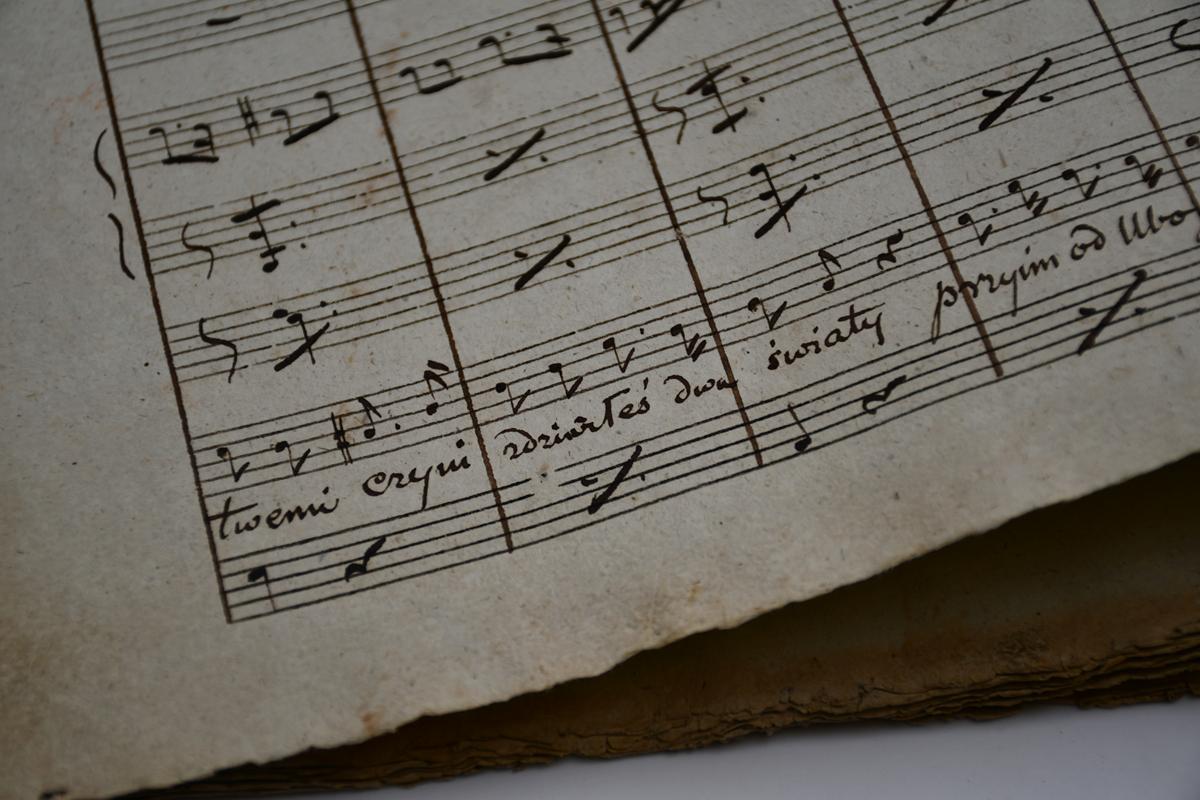 twemi czyni zdziałłeś dwa światy przyim od Ubo